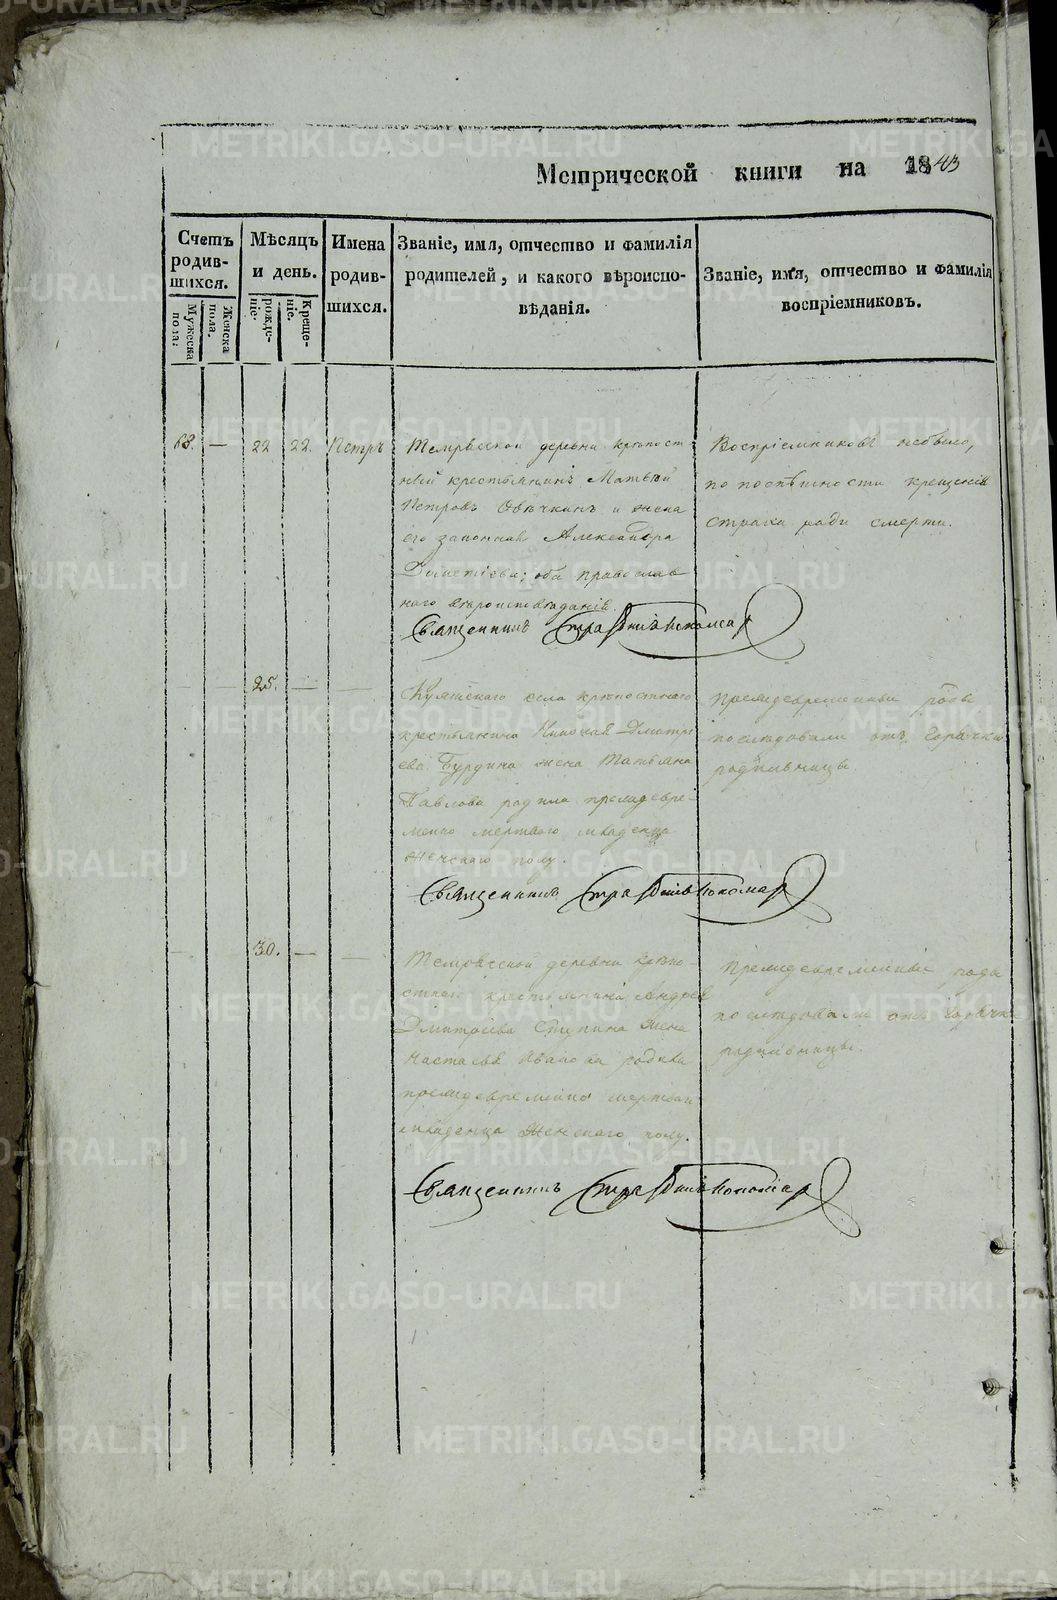 Метрической книги на 1843
Счетъ родив-шихся.
Мужеска пола:
Женска пола.
Мѣсяцъ и день.
рожде-ніе.
Креще-ніе.
Имена родив-шихся.
Званіе, имя, отчество и фамилія
родителей, и какого вѣроиспо-
вѣданія.
Званіе, имя, отчество и фамилія
воспріемниковъ.
68. — 22 22. Петръ
деревни крѣпост
ный крестьянинъ Матвѣй
Петровъ Овѣчкинъ и жена
его законная Александра
оба православ
наго вѣроисповѣданія.
Воспріемниковъ небыло,
по поспѣшности крещенія
страха ради смерти.
Священникъ
— — 25. — —
села крѣпостнаго
крестьянина Николая Дмитрі
ева Бурдина жена Татьяна
Павлова родила преждевре-
менно мертваго младенца
женскаго полу.
Преждевременные роды
послѣдовали отъ горячки
родильницы.
Священникъ
— 30. — —
деревни крѣпо-
стнаго крестьянина Андрея
Дмитріева Ступина жена
Настасья Иванова родила
преждевременно мертваго
младенца женскаго полу.
Преждевременные роды
послѣдовали отъ горячки
родильницы.
Священникъ
METRIKI.GASO-URAL.RU